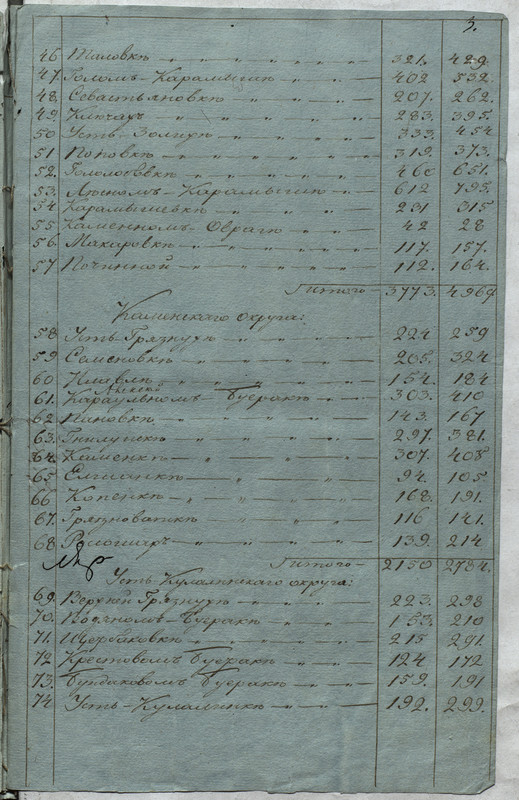 3.
46 Таловкѣ 321. 429.
47. Голомъ-Карамышѣ 402 532.
48. Севастьяновкѣ 207. 262.
49. Ключахъ 283. 395.
50 Усть-Золихѣ 333. 454
51 Поповкѣ 319. 373.
52. Гололобовкѣ 651.
53. Лѣсномъ-Карамышѣ 612 795.
54. Карамышевкѣ 231 315
55 Каменномъ Оврагѣ 42 28
56. Макаровкѣ 117. 157.
57 Починной 112. 164.
Итого 3773. 4969
Каменскаго округа:
58 Усть Грязнухѣ 224 259
59 Семеновкѣ 205. 324
60. Иловлѣ 154. 184
61. Караульномъ Буеракѣ 303. 410
62 Пановкѣ 143. 167
63. Гнилушкѣ 297. 381.
64. Каменкѣ 307. 405
65 Елшанкѣ 94. 105
66 Копенкѣ 168. 191.
67. Грязноваткѣ 116 141.
68. Россошахъ 139. 214
Итого 2150 2784.
Усть Кулалинскаго округа:
69. Верхней Грязнухѣ 223. 298
70. Водяномъ-Буеракѣ 153. 210
71. Щербаковкѣ 215 291.
72 Крестовомъ Буеракѣ 124 172
73. Буйдаковомъ Буеракѣ 159. 191
74 Усть-Кулалинкѣ 192. 299.